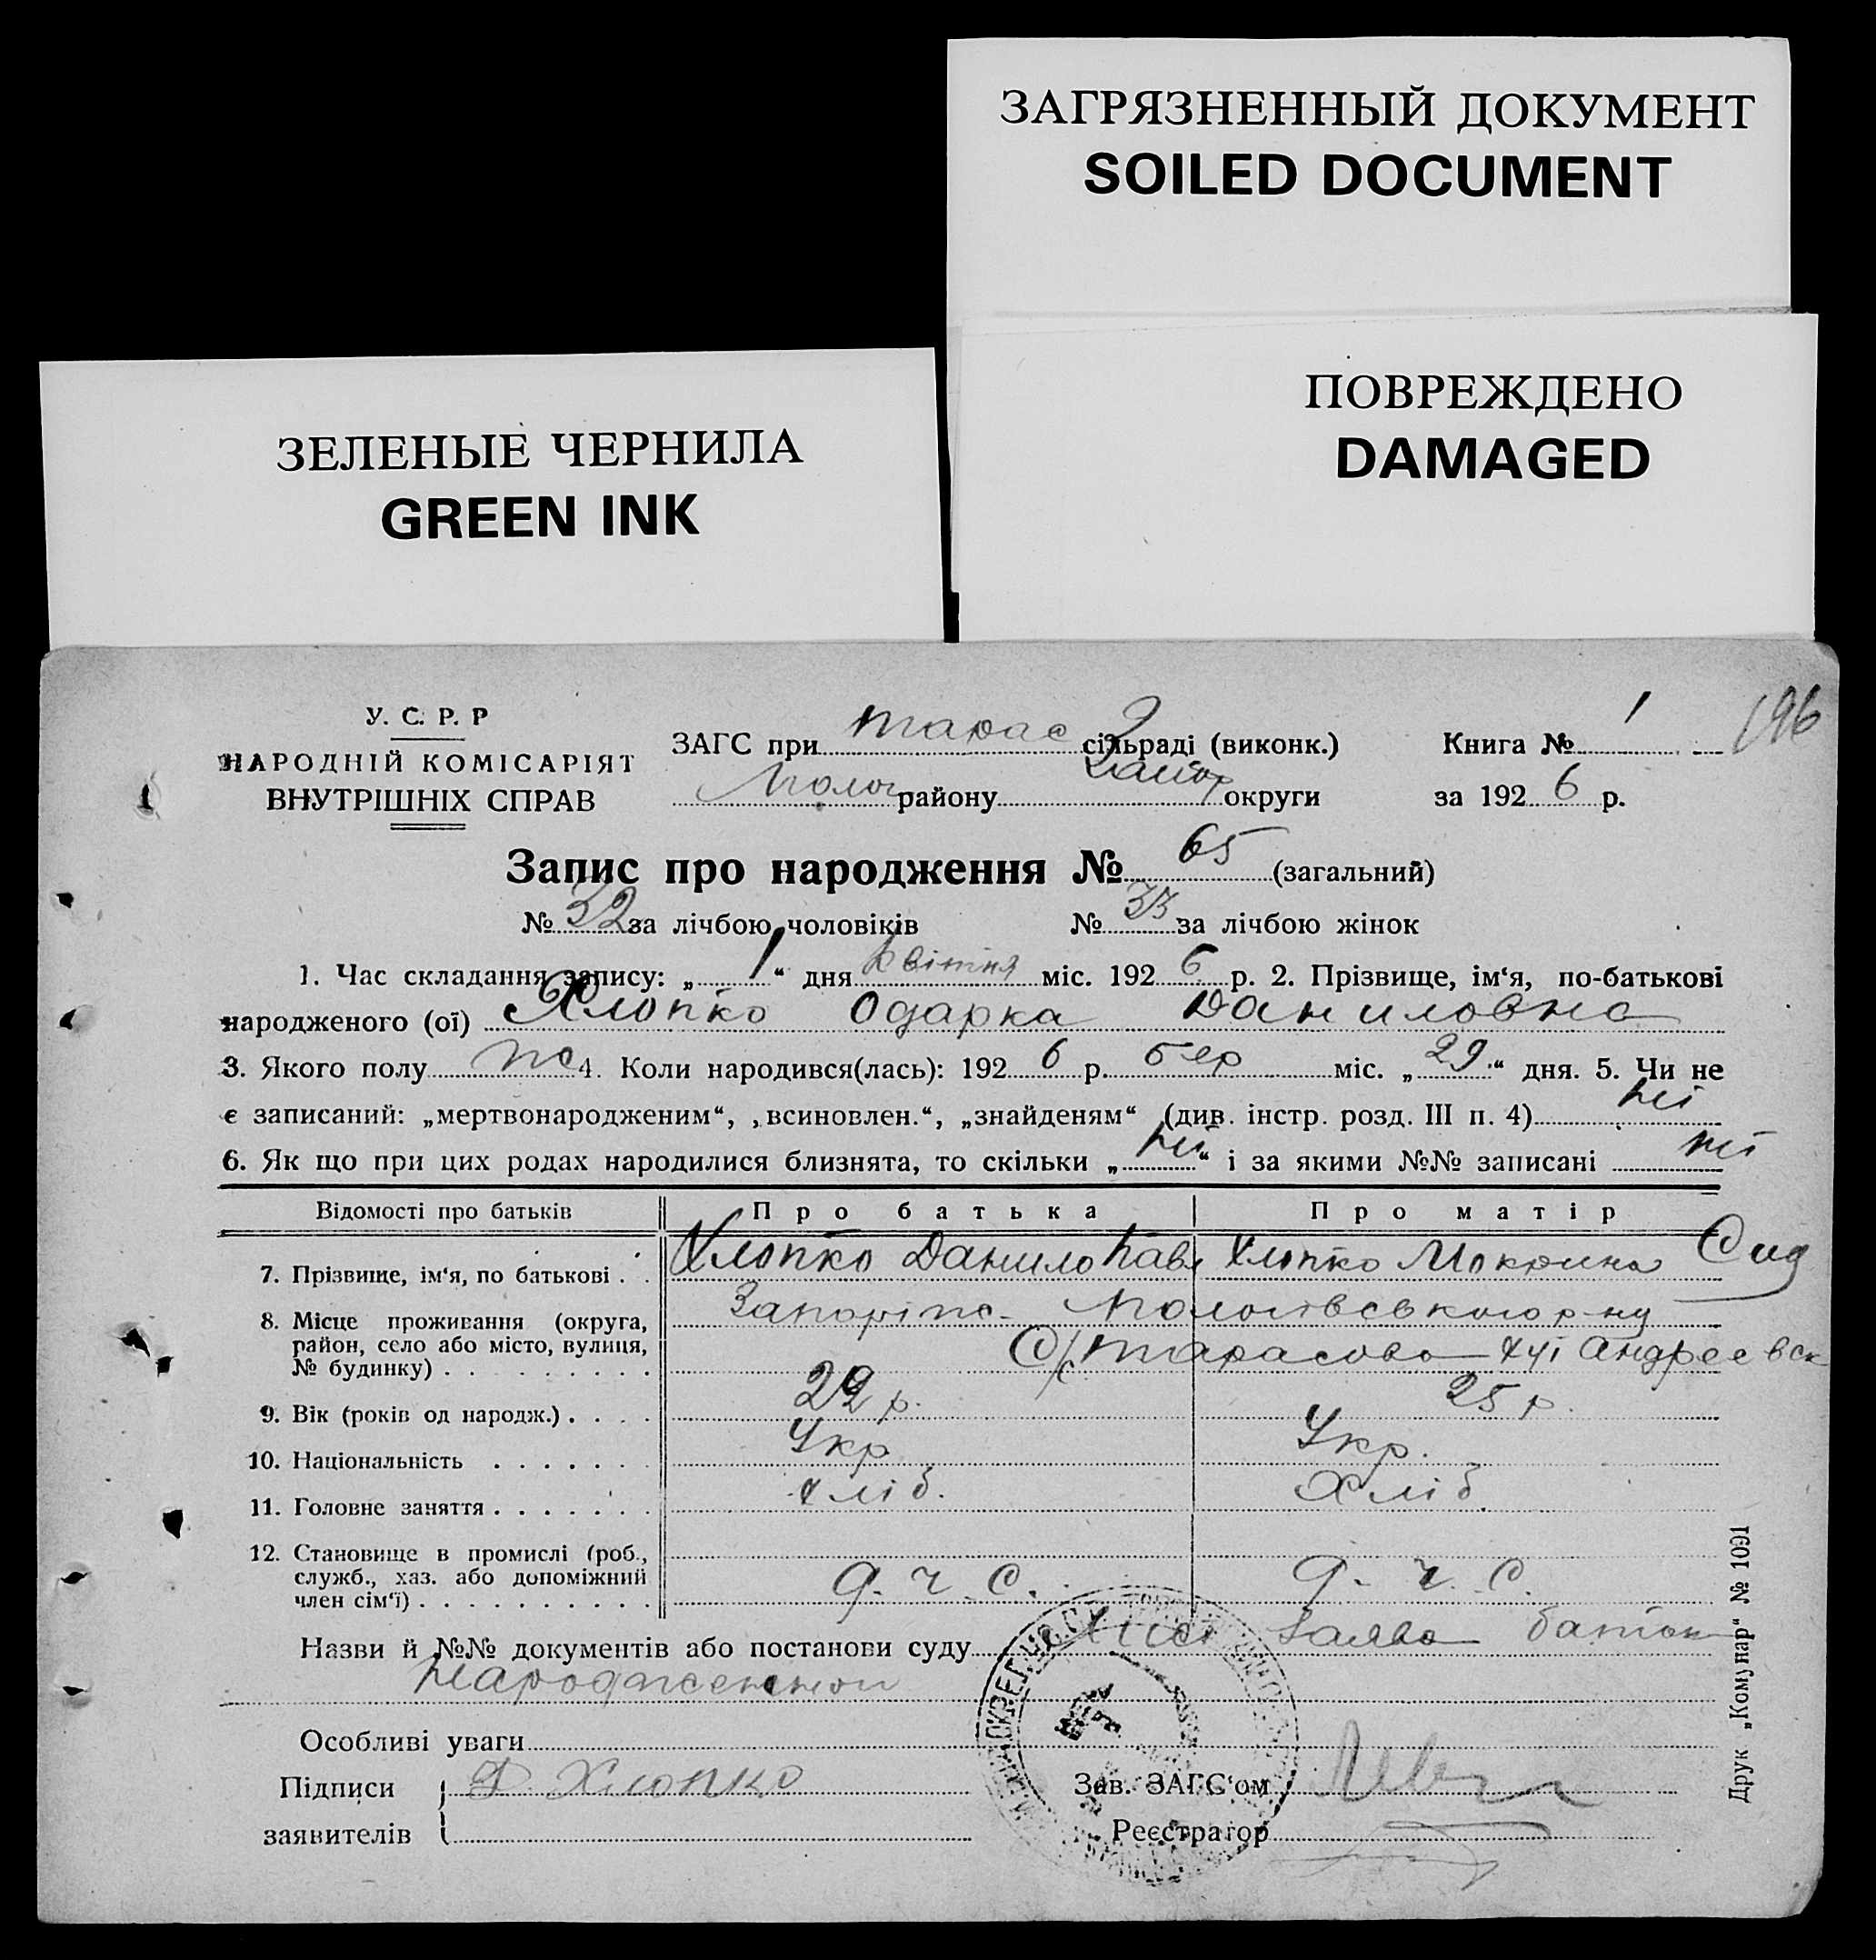 ЗАГРЯЗНЕННЫЙ ДОКУМЕНТ
SOILED DOCUMENT
ПОВРЕЖДЕНО
DAMAGED
ЗЕЛЕНЫЕ ЧЕРНИЛА
GREEN INK
У. С. Р. Р
НАРОДНІЙ КОМІСАРІЯТ
ВНУТРІШНІХ СПРАВ
ЗАГС при Тарас сільраді (виконк.) Книга № 1 196
Полог району Запор округи за 1926 р.
Запис про народження № 65 (загальний)
№ 32 за лічбою чоловіків № 33 за лічбою жінок
1. Час складання запису: „1“ дня квітня міс. 1926 р. 2. Прізвище, ім‘я, по-батькові
народженого (ої) Хлопко Одарка Даниловна
3. Якого полу ж 4. Коли народився(лась): 1926 р. бер міс. „29“ дня. 5. Чи не
є записаний: „мертвонародженим“, „всиновлен.“, „знайденям“ (див. інстр. розд. III п. 4) ні
6. Як що при цих родах народилися близнята, то скільки „ні“ і за якими №№ записані ні
Відомості про батьків Про батька Про матір
7. Прізвище, ім‘я, по батькові Хлопко Данило Пав Хлопко Мокрина Сид
8. Місце проживання (округа, район, село або місто, вулиця, № будинку) Запоріж- Пологівського р-ну
с/с Тарасово хуі Андреевск
9. Вік (років од народж.) 29 р. 25 р.
10. Національність Укр Укр.
11. Головне заняття хліб. Хліб.
12. Становище в промислі (роб., служб., хаз. або допоміжний член сім‘ї) д. ч. с. д. ч. с.
Назви й №№ документів або постанови суду заява батьк
народження
Особливі уваги
Підписи Д Хлопко Зав. ЗАГС‘ом
заявителів Реєстратор
Друк „Комунар“ № 1091